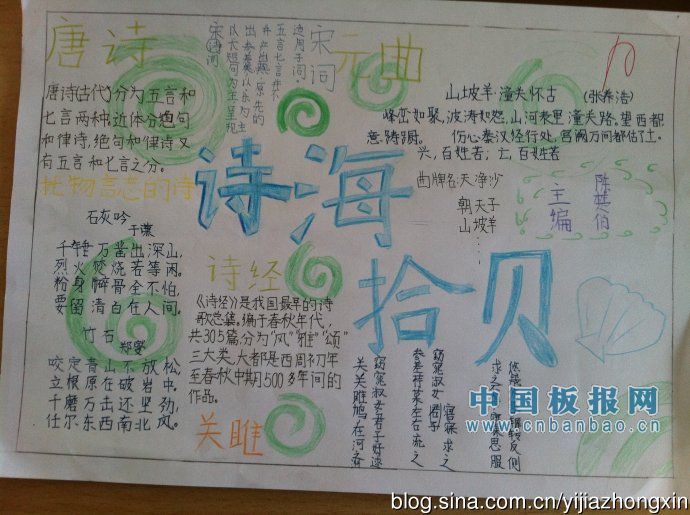 唐诗
唐诗(古代)分为五言和
七言两种近体分绝句
和律诗,绝句和律诗又
有五言和七言之分。
托物言志的诗
石灰吟
于谦
千锤万凿出深山,
烈火焚烧若等闲。
粉身碎骨全不怕,
要留清白在人间。
竹石
郑燮
咬定青山不放松,
立根原在破岩中。
千磨万击还坚劲,
任尔东西南北风。
宋词
元曲
山坡羊·潼关怀古 (张养浩)
峰峦如聚,波涛如怒,山河表里潼关路,望西都
意踌蹰。 伤心秦汉经行处,宫阙万间都做了土。
兴,百姓苦;亡,百姓苦
曲牌名:天净沙
朝天子
山坡羊
……
主编
诗海
拾贝
诗经
《诗经》是我国最早的诗
歌总集。编于春秋年代,
共305篇,分为"风""雅""颂"
三大类,大都是西周初年
至春秋中期500多年间的
作品。
关雎
关关雎鸠在河之洲
窈窕淑女君子好逑
参差荇菜左右流之
窈窕淑女
寤寐求之
求之不得寤寐思服
中国板报网
www.cnbanbao.cn
blog.sina.com.cn/yijiazhongxin